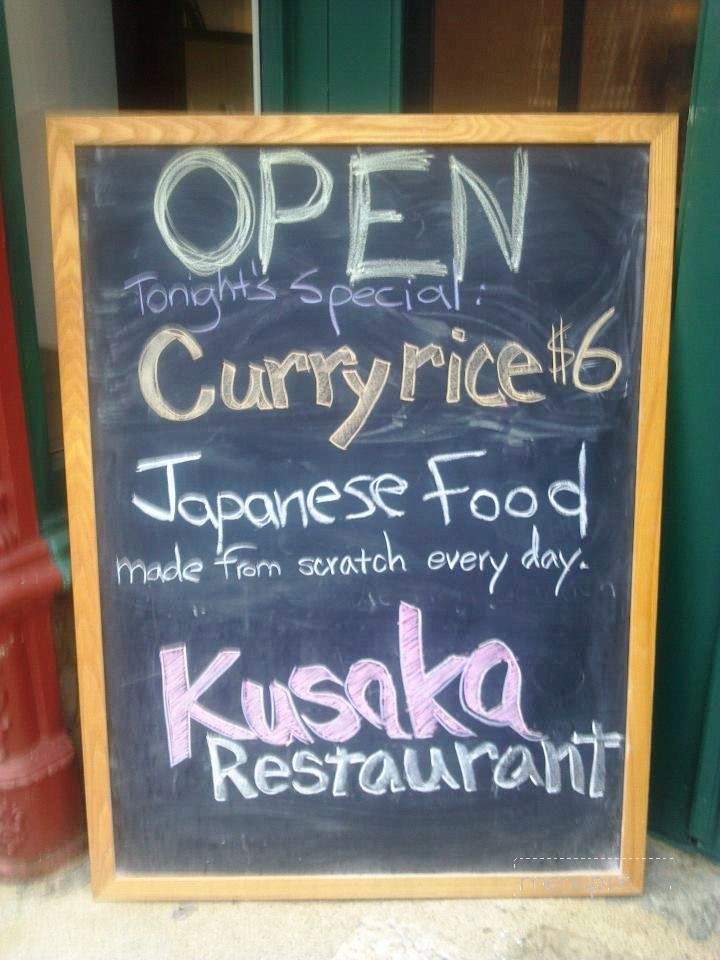 OPEN
Tonight's Special:
Curry rice $6
Japanese Food
made from scratch every day.
Kusaka
Restaurant